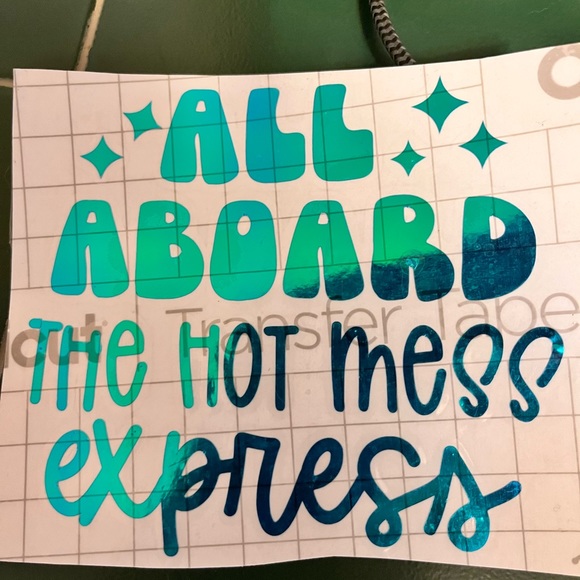 ALL
ABOARD
THE HOT mess
express
cricut Transfer Tape